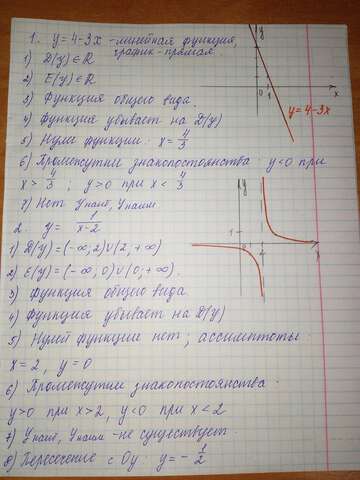 1. y = 4-3x - линейная функция,
график - прямая.
1) D(y) ∈ R
2) E(y) ∈ R
3) Функция общего вида.
4) Функция убывает на D(y)
5) Нули функции: x = 4/3
6) Промежутки знакопостоянства: y<0 при
x > 4/3 ; y>0 при x < 4/3
7) Нет yнаиб, yнаим
y
1
x
y=4-3x
2. y = 1/(x-2)
1) D(y) = (-∞, 2)∪(2, +∞)
2) E(y) = (-∞, 0)∪(0, +∞).
3) Функция общего вида
4) Функция убывает на D(y)
5) Нулей функции нет; ассимптоты:
x = 2, y = 0
6) Промежутки знакопостоянства:
y>0 при x>2, y<0 при x<2
7) yнаиб, yнаим - не существует.
8) Пересечение с Oy: y = -1/2
y
1
0
x